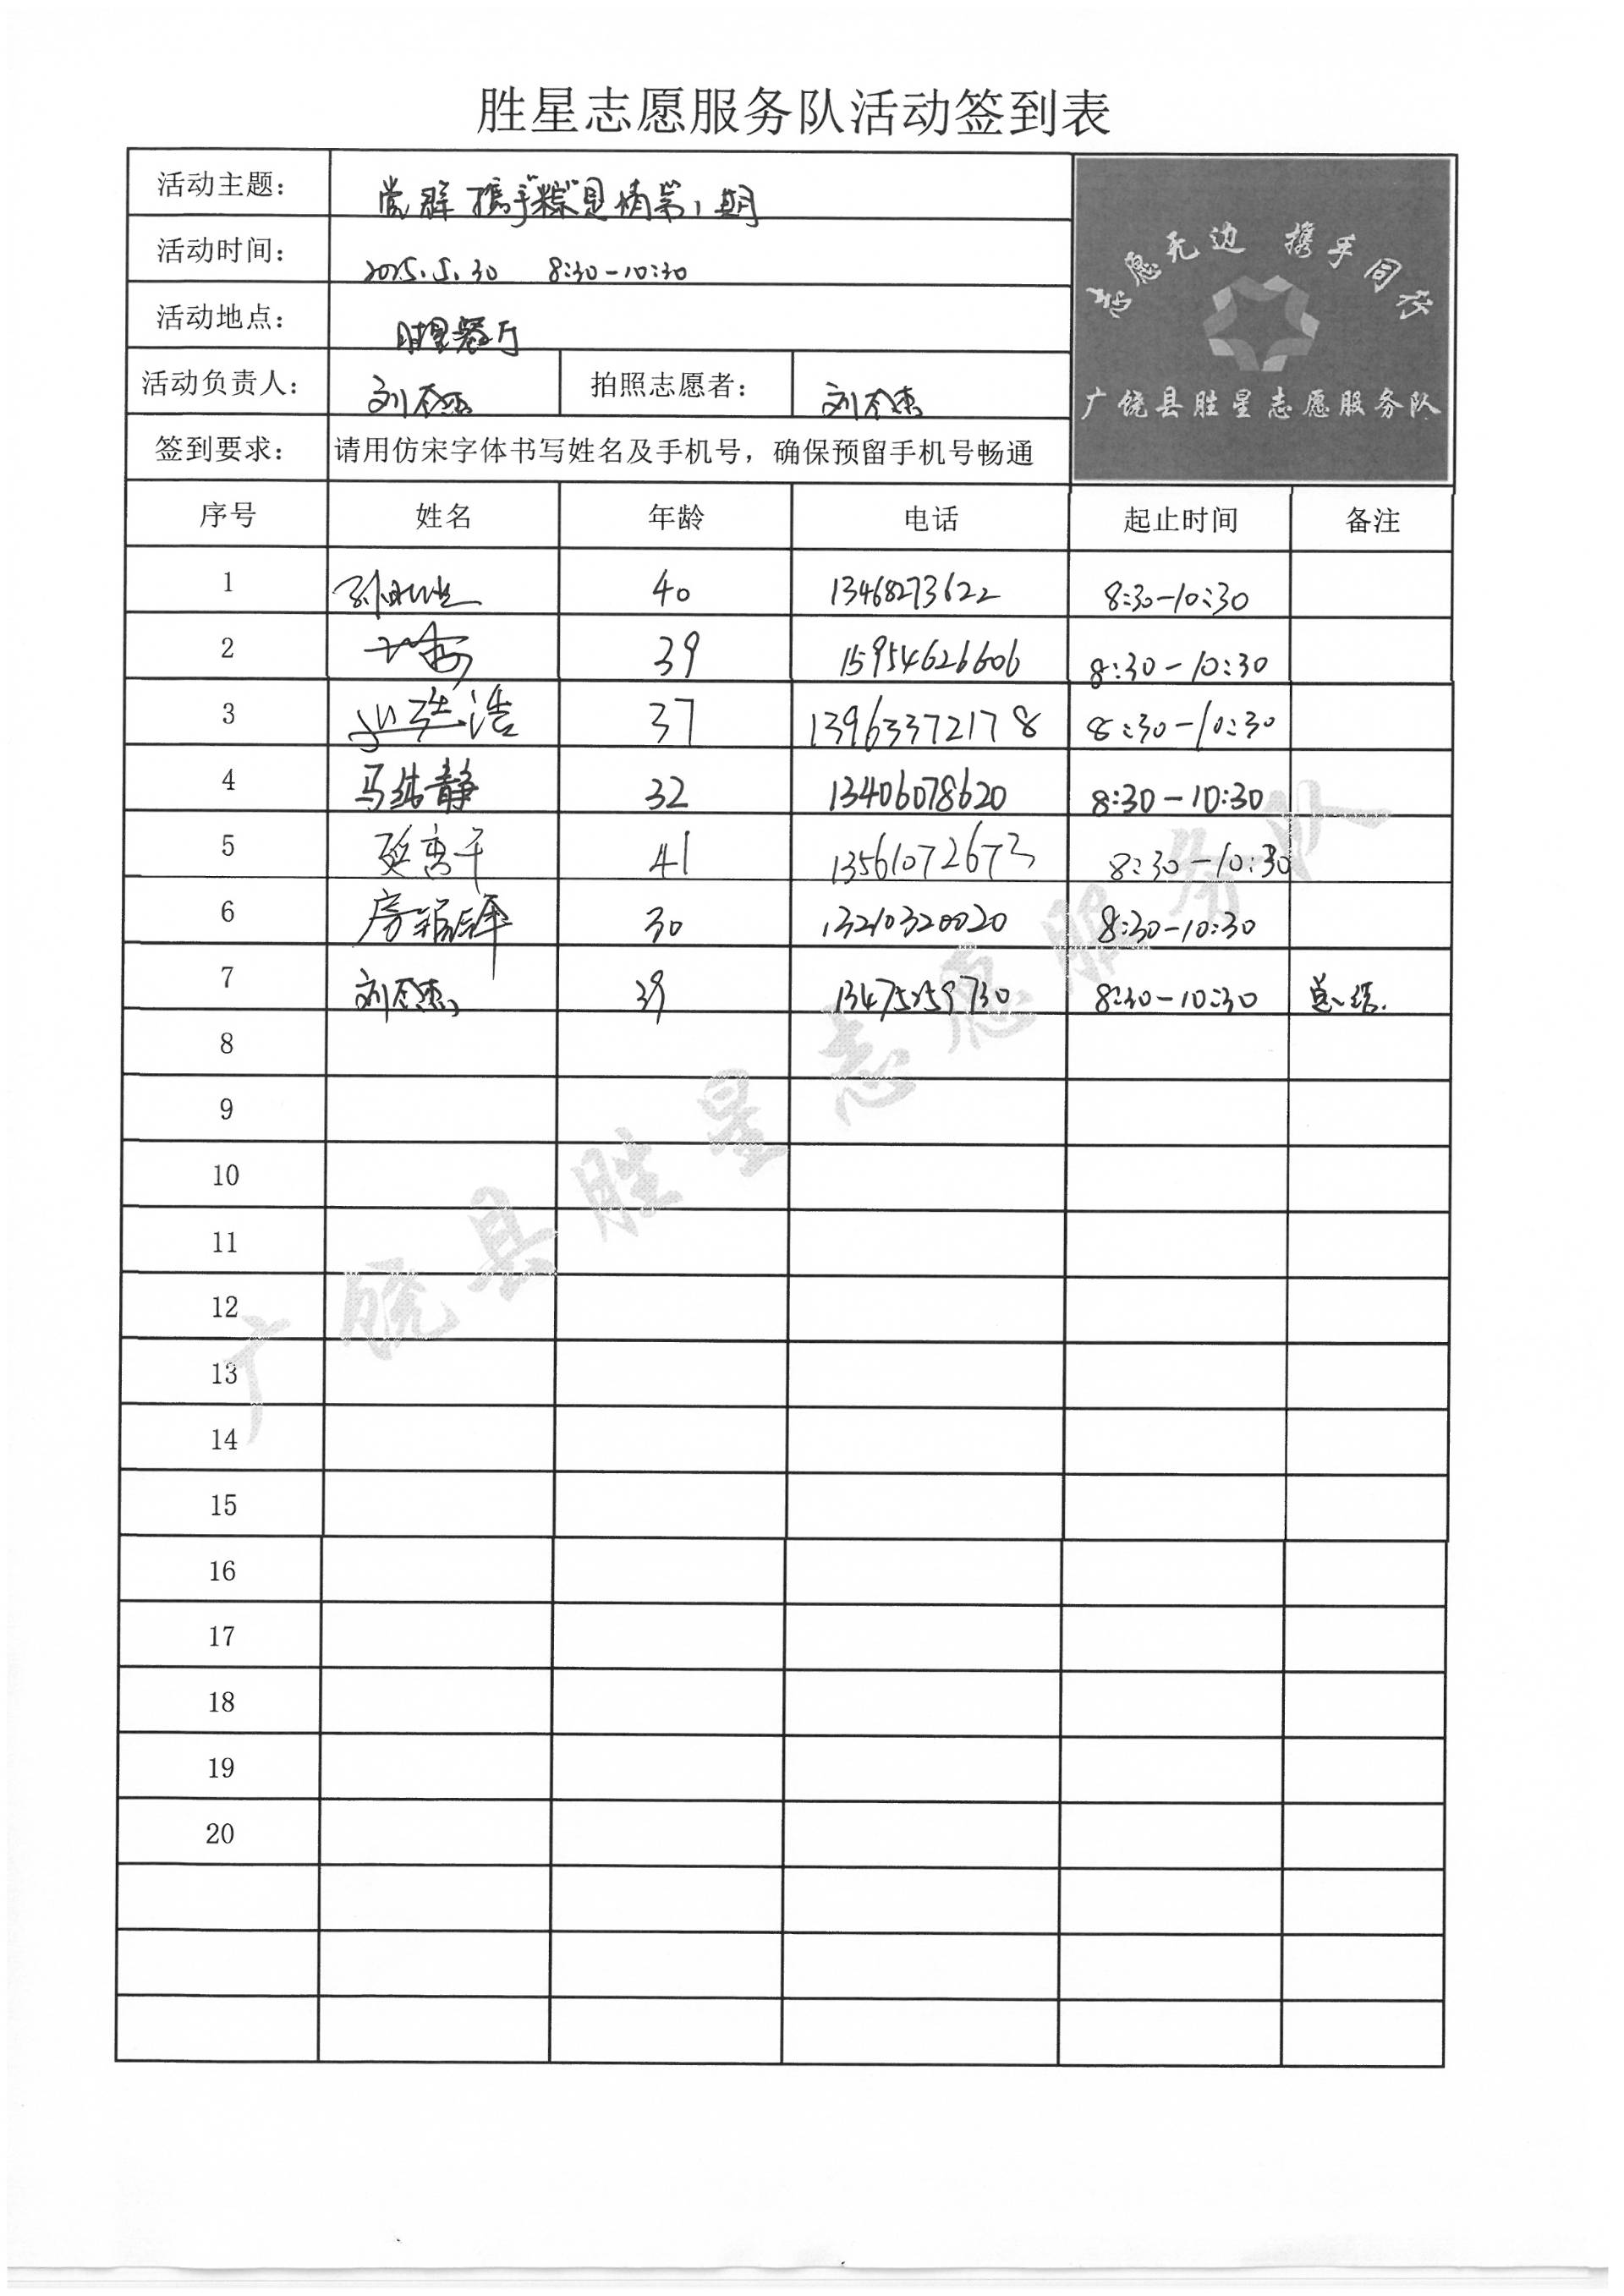 胜星志愿服务队活动签到表
活动主题： 党群携手"粽"见情第1期
活动时间： 2025.5.30 8:30-10:30
活动地点： 胜星餐厅
活动负责人： 刘 拍照志愿者： 刘
签到要求： 请用仿宋字体书写姓名及手机号，确保预留手机号畅通
志愿无边 携手同行
广饶县胜星志愿服务队
序号 姓名 年龄 电话 起止时间 备注
1 40 13468273622 8:30-10:30
2 39 15954626606 8:30-10:30
3 浩 37 13963372178 8:30-10:30
4 马 静 32 13406078620 8:30-10:30
5 41 13561072673 8:30-10:30
6 房 30 13210320020 8:30-10:30
7 刘 39 13475259730 8:30-10:30 总结.
8
9
10
11
12
13
14
15
16
17
18
19
20
广饶县胜星志愿服务队